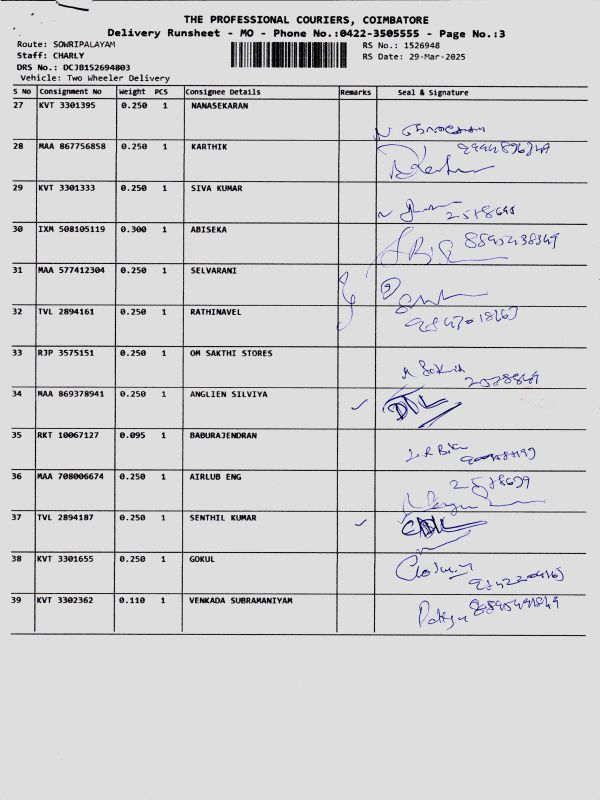 THE PROFESSIONAL COURIERS, COIMBATORE
Delivery Runsheet - MO - Phone No.:0422-3505555 - Page No.:3
Route: SOWRIPALAYAM
RS No.: 1526948
Staff: CHARLY
RS Date: 29-Mar-2025
DRS No.: DCJB152694803
Vehicle: Two Wheeler Delivery
S No Consignment No Weight PCS Consignee Details Remarks Seal & Signature
27 KVT 3301395 0.250 1 NANASEKARAN
28 MAA 867756858 0.250 1 KARTHIK
29 KVT 3301333 0.250 1 SIVA KUMAR
30 IXM 508105119 0.300 1 ABISEKA
31 MAA 577412304 0.250 1 SELVARANI
32 TVL 2894161 0.250 1 RATHINAVEL
33 RJP 3575151 0.250 1 OM SAKTHI STORES
34 MAA 869378941 0.250 1 ANGLIEN SILVIYA
35 RKT 10067127 0.095 1 BABURAJENDRAN
36 MAA 708006674 0.250 1 AIRLUB ENG
37 TVL 2894187 0.250 1 SENTHIL KUMAR
38 KVT 3301655 0.250 1 GOKUL
39 KVT 3302362 0.110 1 VENKADA SUBRAMANIYAM